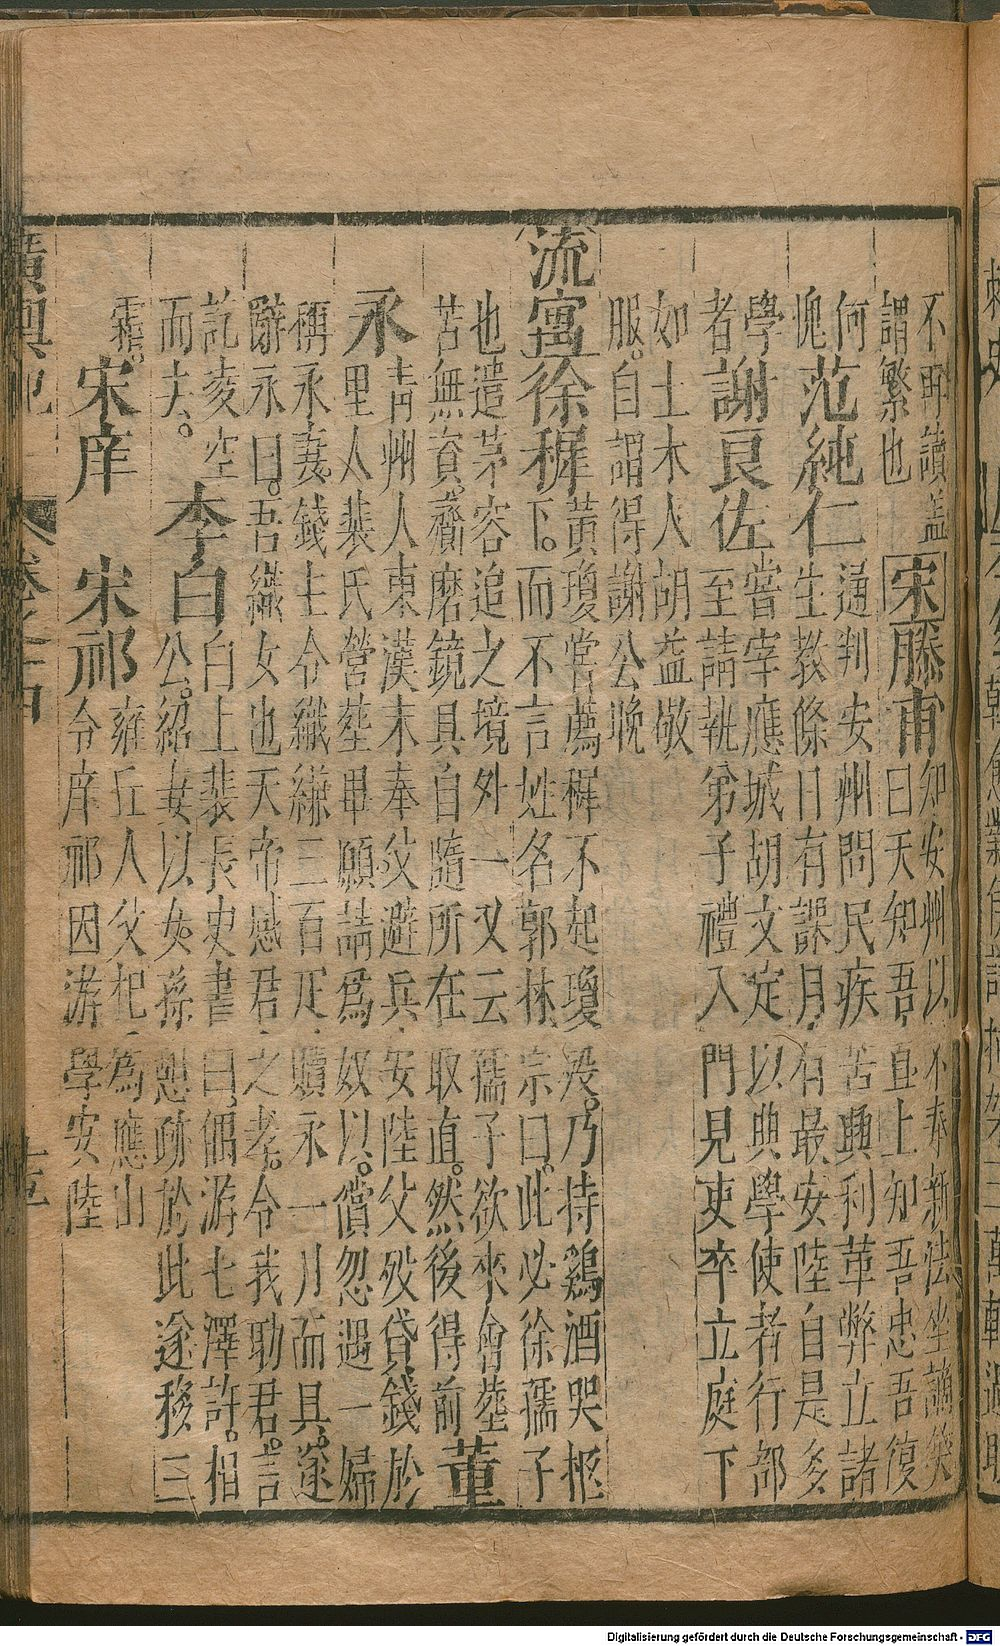 不即讀盖 宋滕甫 知安州以不奉新法坐謫嘆
謂繁也 曰天知吾直上知吾忠吾復
何 范純仁 通判安州問民疾苦興利革弊立諸
愧 生教條日有課月有最安陸自是多
學 謝良佐 嘗宰應城胡文定以典學使者行部
者 至請執弟子禮入門見吏卒立庭下
如土木人胡益敬
服。自謂得謝公晚
流寓 徐穉 黃瓊嘗薦穉不起瓊歿。乃持鷄酒哭柩
下。而不言姓名郭林宗曰。此必徐孺子
也遣茅容追之境外一又云孺子欲來會塟
苦無資。齎磨鏡具自隨所在取直。然後得前 董
永 青州人東漢末奉父避兵安陸父歿貸錢於
里人裴氏營塟畢願請爲奴以。償忽遇一婦
稱永妻。錢主令織縑三百疋贖永一月而具。遂
辭永曰。吾織女也天帝感君之孝。令我助君。言
訖凌空 李白 白上裴長史書曰。偶游七澤許。相
而夫。 公。紹妻以女。孫憩跡於此遂移三
霜。 宋庠 宋祁 雍丘人父杞為應山
令庠祁因游學安陸
廣輿記 卷之十四
Digitalisierung gefördert durch die Deutsche Forschungsgemeinschaft - DFG